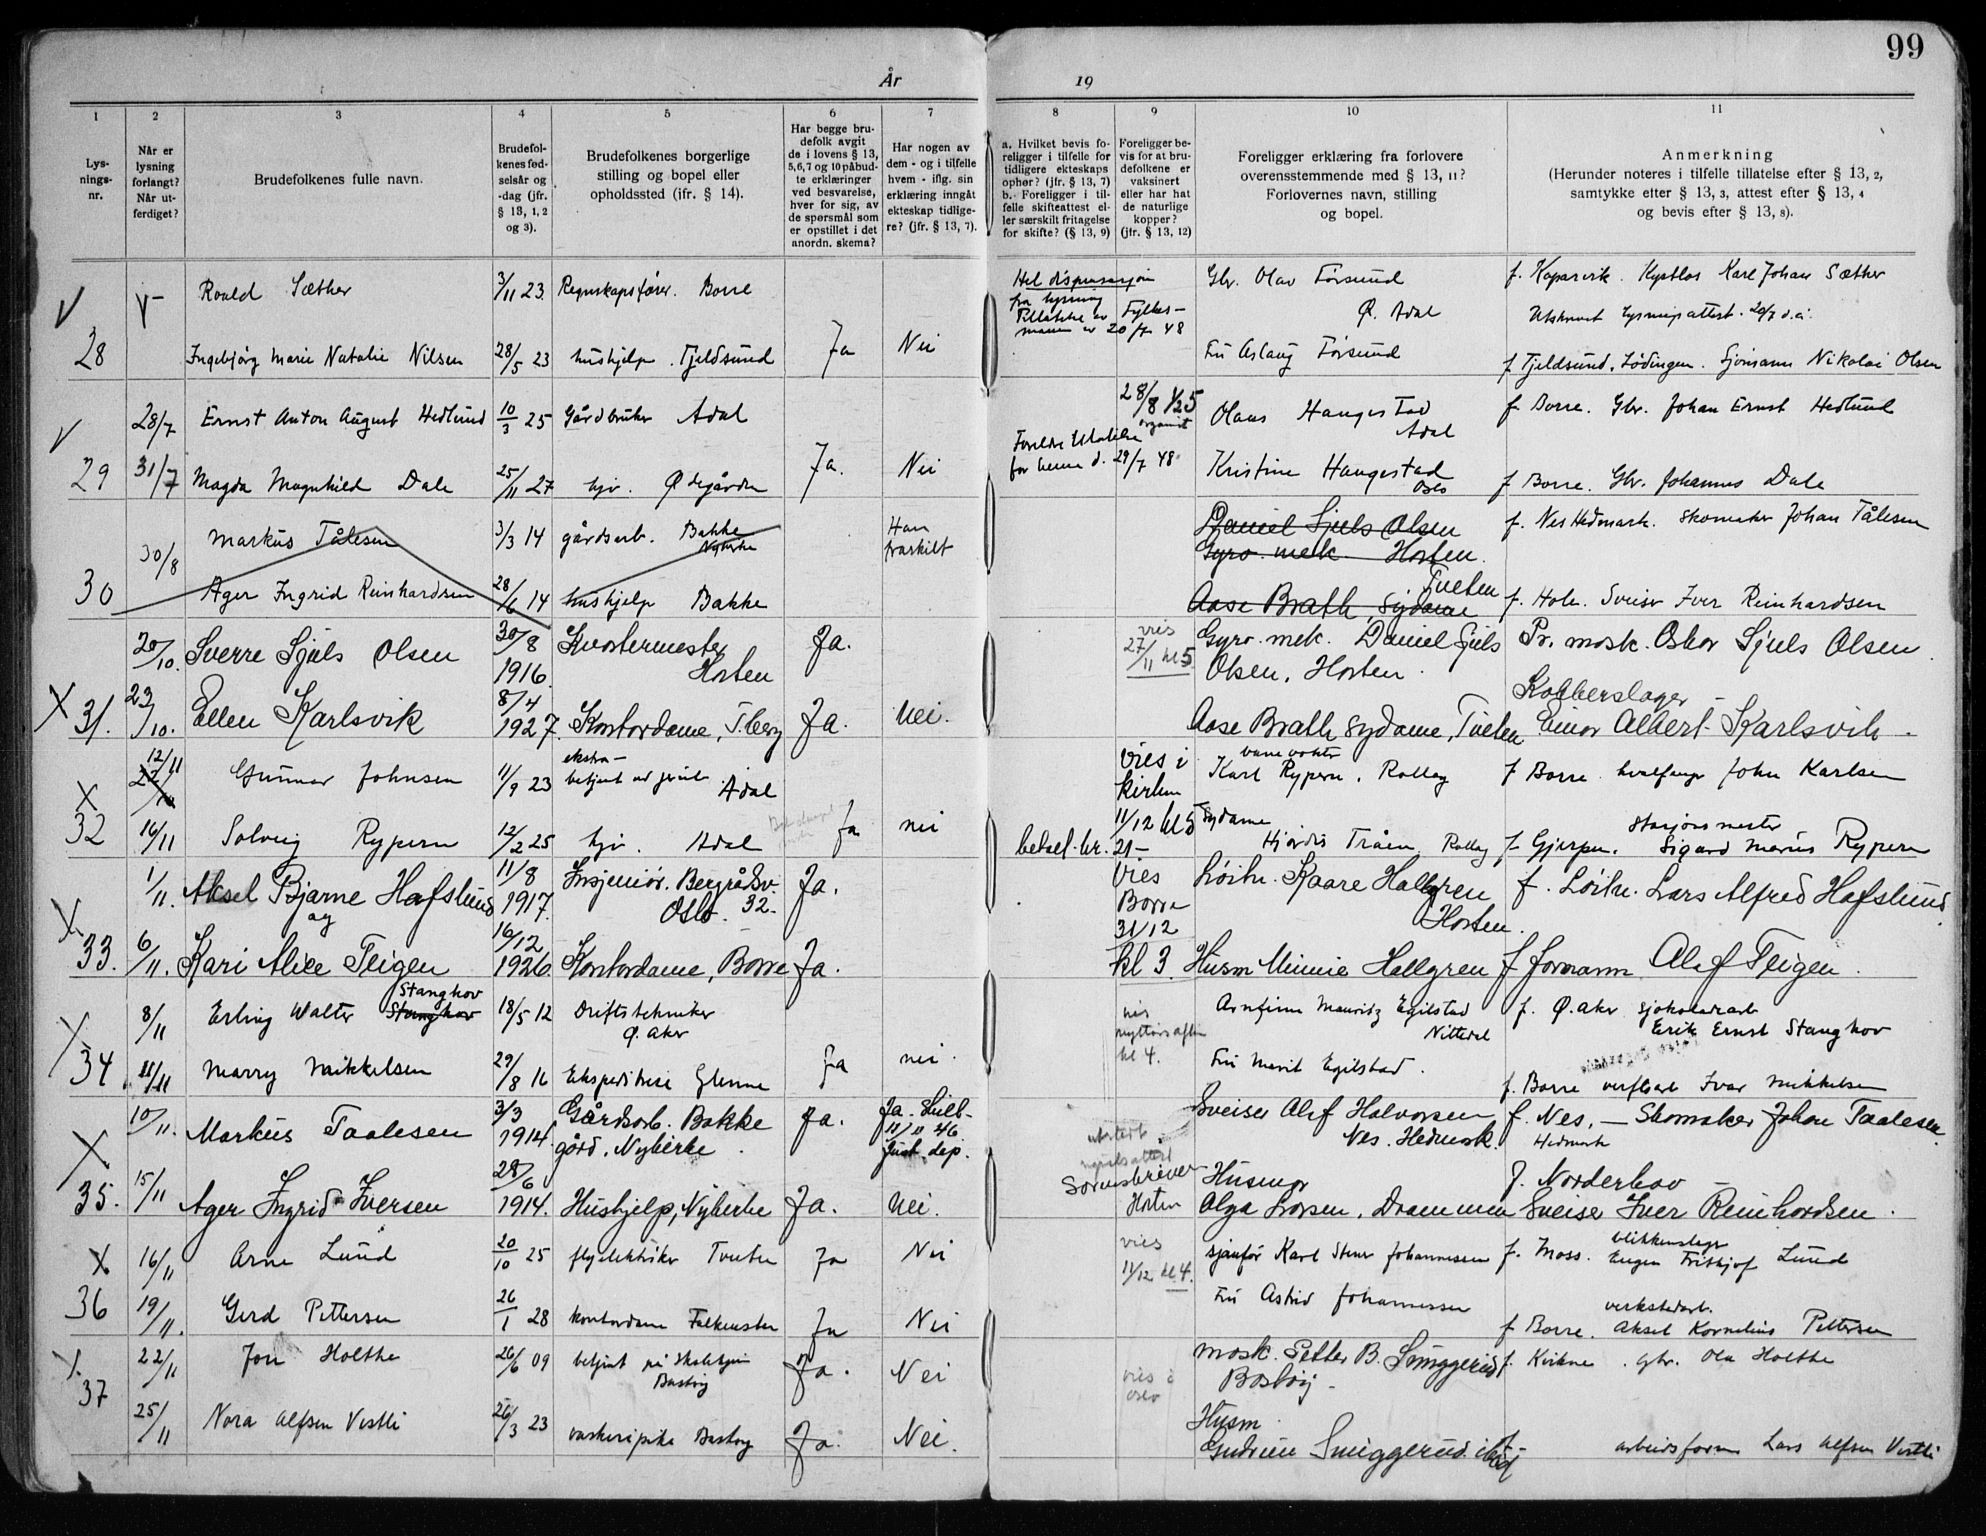 99
År
19
1
2
3
4
5
6
7
8
9
10
11
Lys-
nings-
nr.
Når er
lysning
forlangt?
Når ut-
ferdiget?
Brudefolkenes fulle navn.
Brudefol-
kenes fød-
selsår og
-dag (jfr.
§ 13, 1, 2
og 3).
Brudefolkenes borgerlige
stilling og bopel eller
opholdssted (ifr. § 14).
Har begge bru-
defolk avgit
de i lovens § 13,
5,6,7 og 10 påbud-
te erklæringer
ved besvarelse,
hver for sig, av
de spørsmål som
er opstillet i det
anordn. skema?
Har nogen av
dem - og i tilfelle
hvem - iflg. sin
erklæring inngåt
ekteskap tidlige-
re? (jfr. § 13, 7).
a. Hvilket bevis fo-
religger i tilfelle for
tidligere ekteskaps
ophør? (jfr. § 13, 7)
b. Foreligger i til-
felle skifteattest el-
ler særskilt fritagelse
for skifte? (§ 13, 9)
Foreligger be-
vis for at bru-
defolkene er
vaksinert
eller har hat
de naturlige
kopper?
(jfr. § 13, 12)
Foreligger erklæring fra forlovere
overensstemmende med § 13, 11?
Forlovernes navn, stilling
og bopel.
Anmerkning
(Herunder noteres i tilfelle tillatelse efter § 13, 2,
samtykke etter § 13, 3, attest efter § 13, 4
og bevis efter § 13, 8).
V V- Roald Sæther 3/11 23 Regnskapsfører. Borre Hel dispensasjon Gbr. Olav Førsund f. Koparvik. Kystlos Karl Johan Sæther
fra lysning
Tillatelse av Fylkes- Ø. Adal Utskrevet lysningsattest. 20/7 d.å.
mannen av 20/7 48
28 Ingebjørg Marie Natalie Nilsen 28/5 23 hushjelp. Tjeldsund Ja Nei Fru Aslaug Førsund f Tjeldsund, Lødingen. Sjømann Nikolai Olsen
V 28/7 Ernst Anton August Hedlund 10/3 25 Gårdbruker Adal 28/8 1/2 5 Olaus Haugestad f. Borre. Gbr. Johan Ernst Hedlund
organist Adal
for henne d. 29/7 48
29 31/7 Magda Magnhild Dale 25/11 27 hjv. Ødegården Ja. Nei Kristine Haugestad f Borre. Gbr. Johannes Dale
30/8 Markus Tålesen 3/3 14 gårdsarb. Bakke Han Daniel Sjuls Olsen f. Nes Hedmark. Skomaker Johan Tålesen
Nykirke fraskilt Gyro. mek. Horten.
30 Ager Ingrid Reinhardsen 28/6 14 hushjelp Bakke Aase Brath, Sydame Tveten f. Hole. Sveiser Iver Reinhardsen
20/10. Sverre Sjuls Olsen 30/8 1916 Kvartermester Horten Ja. vies 27/11 kl 5 Gyro. mek. Daniel Sjuls Pr. mask. Oskar Sjuls Olsen.
Olsen, Horten.
Kobberslager
X 31. 23/10. Ellen Karlsvik 8/4 1927. Kontordame, T.berg Ja. Nei. Aase Brath Sydame, Tveten Einar Albert Karlsvik.
X 12/11 Gunnar Johnsen 11/9 23 ekstra-
betjent ved jernb. Adal vies i kirken Karl Rypern, Rollag f Borre. hvalfanger John Karlsen
banevokter
32 16/11 Solveig Rypern 12/2 25 hjv. Adal Ja nei betsel. kr. 21- 11/12 kl 5 Sydame
Hjørdis Tråen, Rollag f. Gjerpen. Stasjonsmester Sigurd Marius Rypern
X 1/11. Aksel Bjarne Hafslund 11/8 1917. Insjeniør. Bergrådsv. 32. Oslo Ja. Vies Borre 31/12 Løitn. Kaare Hallgren f. Løitn. Lars Alfred Hafslund
og Horten.
33. 6/11. Kari Alice Teigen 16/12 1926. Kontordame, Borre Ja. kl 3 Husm Minnie Hallgren f formann Alef Teigen.
X 8/11 Erling Walter Stanghov Stanghov 18/5 12 Driftstekniker Ø. Aker vies nyttårsaften kl 4. Arnfinn Mauritz Egilstad Nittedal f. Ø. Aker sjokoladearb Erik Ernst Stanghov
34 11/11 Marry Mikkelsen 29/8 16 Ekspeditrise Glenne Ja nei. Fru Marit Egilstad. f. Borre verftsarb Ivar Mikkelsen
X 10/11. Markus Taalesen 3/3 1914. Gårdsarb. Bakke gård, Nykirke. Ja. Ja. Skilt 11/11 46 Just. dep. Sveiser Alf Halvorsen f. Nes, - Skomaker Johan Taalesen.
Nes. Hedmark. Hedmark
utstedt
35. 15/11 Ager Ingrid Iversen 28/6 1914. Hushjelp, Nykirke Ja. Nei. Sorenskriver Horten Husmor f. Norderhov -
Olga Larsen, Drammen Sveiser Iver Reinhardsen.
X 16/11 Arne Lund 20/10 25 flyelektriker Tveten Ja Nei vies 11/12 kl 4. sjåfør Karl Stener Johannesen f. Moss. blikkenslager Eugen Frithjof Lund
36 19/11. Gerd Pettersen 26/1 28 kontordame Falkensten Ja Nei Fru Astrid Johannessen f Borre. verkstedarb. Aksel Kornelius Pettersen
X. 22/11 Jon Holthe 26/6 09 betjent på Skolehjem Bastøy Ja. Nei vies i Oslo Mask. Petter B. Smuggerud f. Kvikne. gbr. Ola Holthe
Bastøy -
37 25/11 Nora Alfsen Vestli 26/3 23 vaskeripike Bastøy Ja. Nei. Husm.
Gudrun Smuggerud. ibid arbeidsform Lars Alfsen Vestli